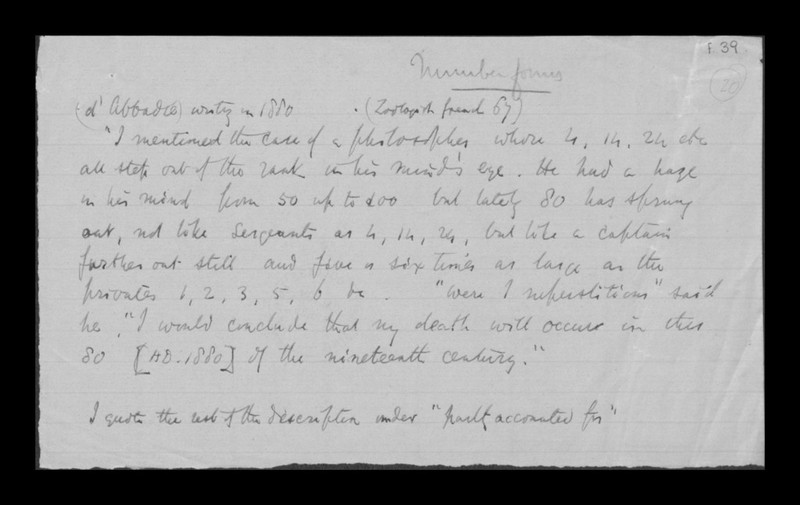 f 39
20
Number forms
(d'Abbadie) writing in 1880 . (Zoologist french 67)
"I mentioned the case of a philosopher whose 4, 14, 24 etc
all step out of the rank in his mind's eye. He had a haze
in his mind from 50 up to 100 but lately 80 has sprung
out, not like Sergeants as 4, 14, 24, but like a captain
further out still and five or six times as large as the
privates 1, 2, 3, 5, 6 &c. "Were I superstitious" said
he, "I would conclude that my death will occur in the
80 [AD. 1880] of the nineteenth century."
I quote the rest of the description under "partly accounted for"